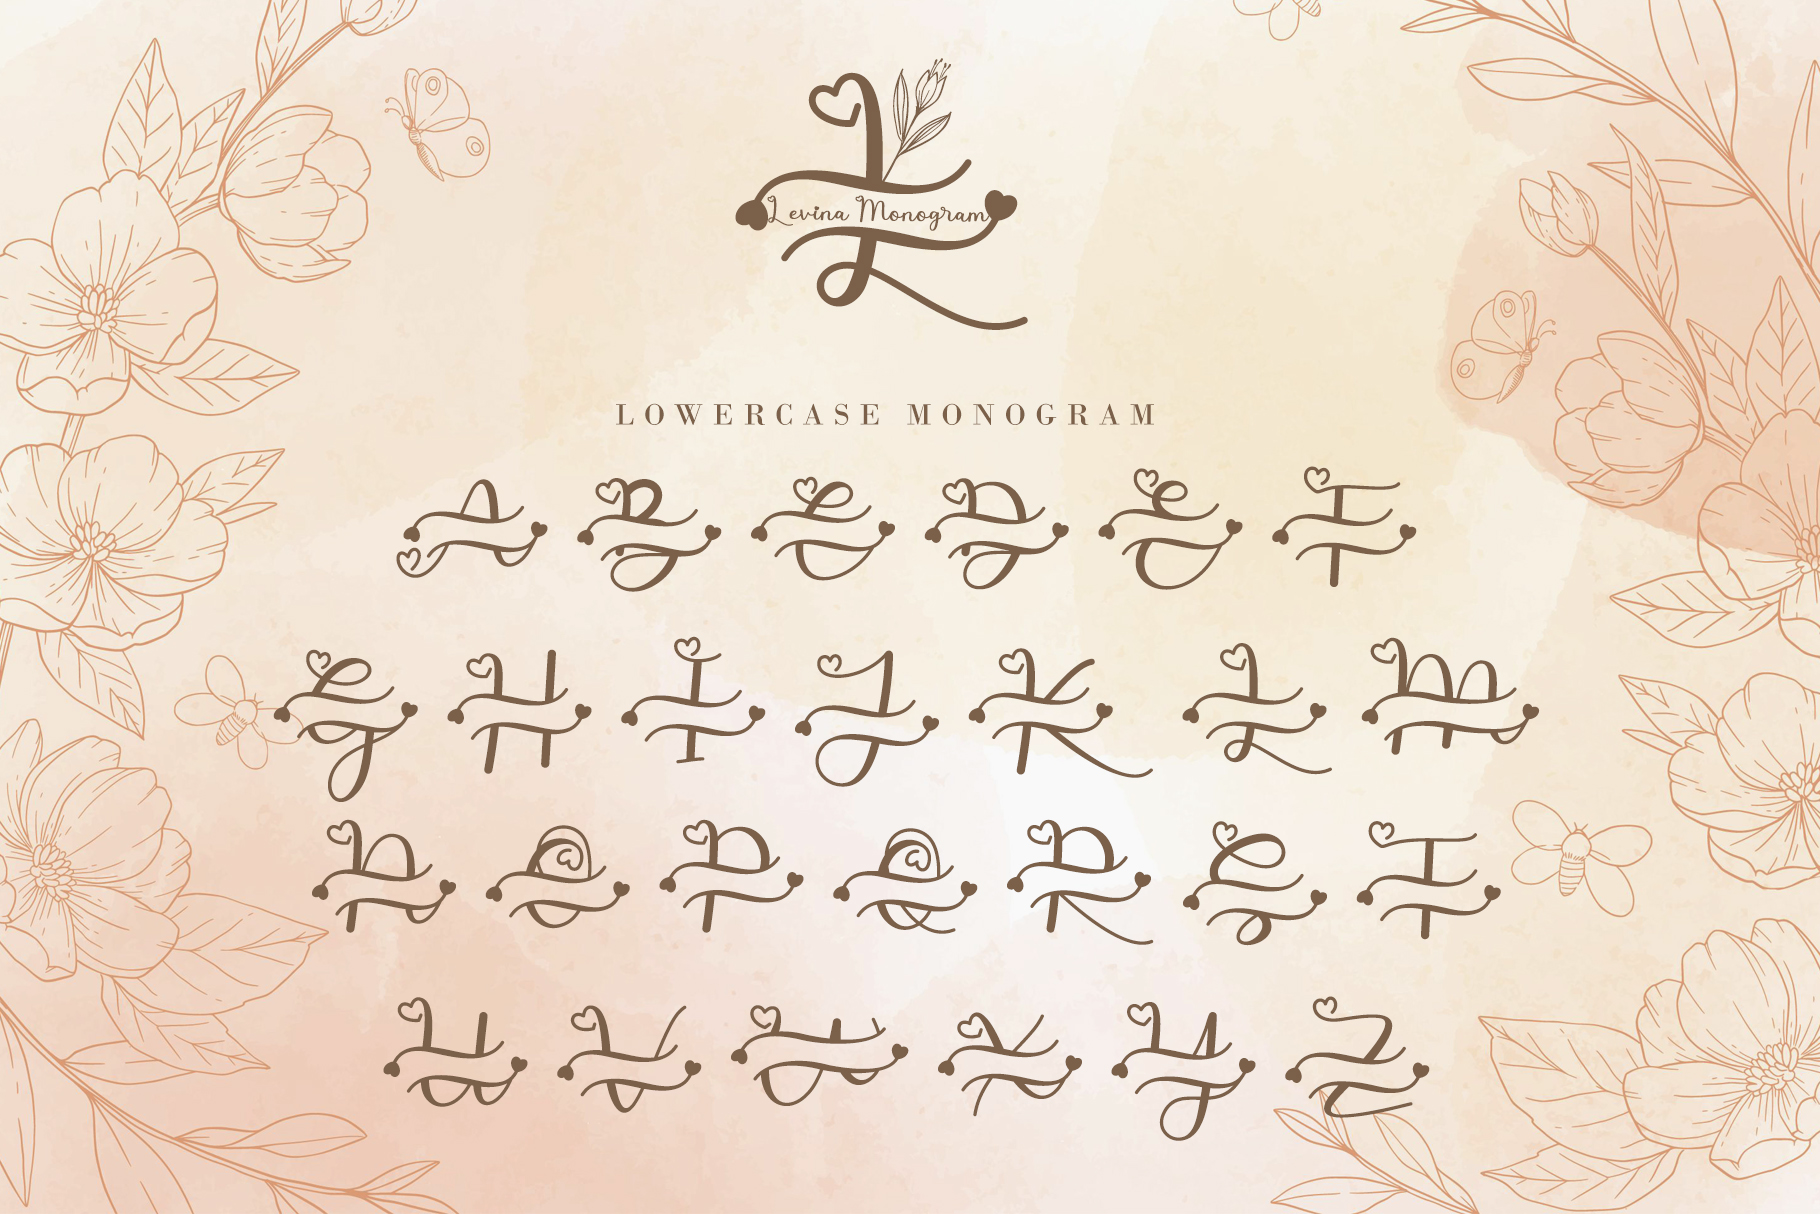 L
Levina Monogram
LOWERCASE MONOGRAM
A B C D E F
G H I J K L M
N O P Q R S T
U V W X Y Z